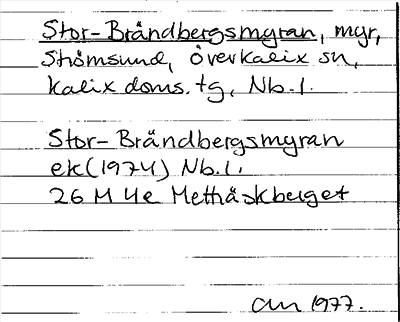 Stor-Brändbergsmyran, myr,
Strömsund, Överkalix sn,
Kalix doms. tg, Nb. l.
Stor-Brändbergsmyran
ek (1974) Nb. l.
26 M 4e Methäskberget
am 1977.